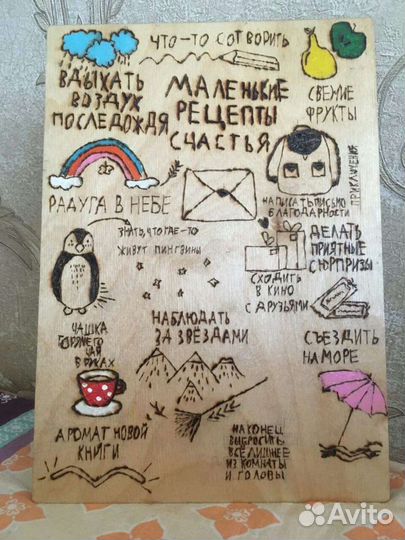 ЧТО-ТО СОТВОРИТЬ
ВДЫХАТЬ
ВОЗДУХ
ПОСЛЕ ДОЖДЯ
МАЛЕНЬКИЕ
РЕЦЕПТЫ
СЧАСТЬЯ
СВЕЖИЕ
ФРУКТЫ
РАДУГА В НЕБЕ
НАПИСАТЬ ПИСЬМО
БЛАГОДАРНОСТИ
ПРИКЛЮЧЕНИЯ
ЗНАТЬ, ЧТО ГДЕ-ТО
ЖИВУТ ПИНГВИНЫ
ДЕЛАТЬ
ПРИЯТНЫЕ
СЮРПРИЗЫ
СХОДИТЬ
В КИНО
С ДРУЗЬЯМИ
ЧАШКА
ГОРЯЧЕГО
ЧАЯ
В РУКАХ
НАБЛЮДАТЬ
ЗА ЗВЁЗДАМИ
СЪЕЗДИТЬ
НА МОРЕ
АРОМАТ НОВОЙ
КНИГИ
НАКОНЕЦ
ВЫБРОСИТЬ
ВСЁ ЛИШНЕЕ
ИЗ КОМНАТЫ
И ГОЛОВЫ
Avito